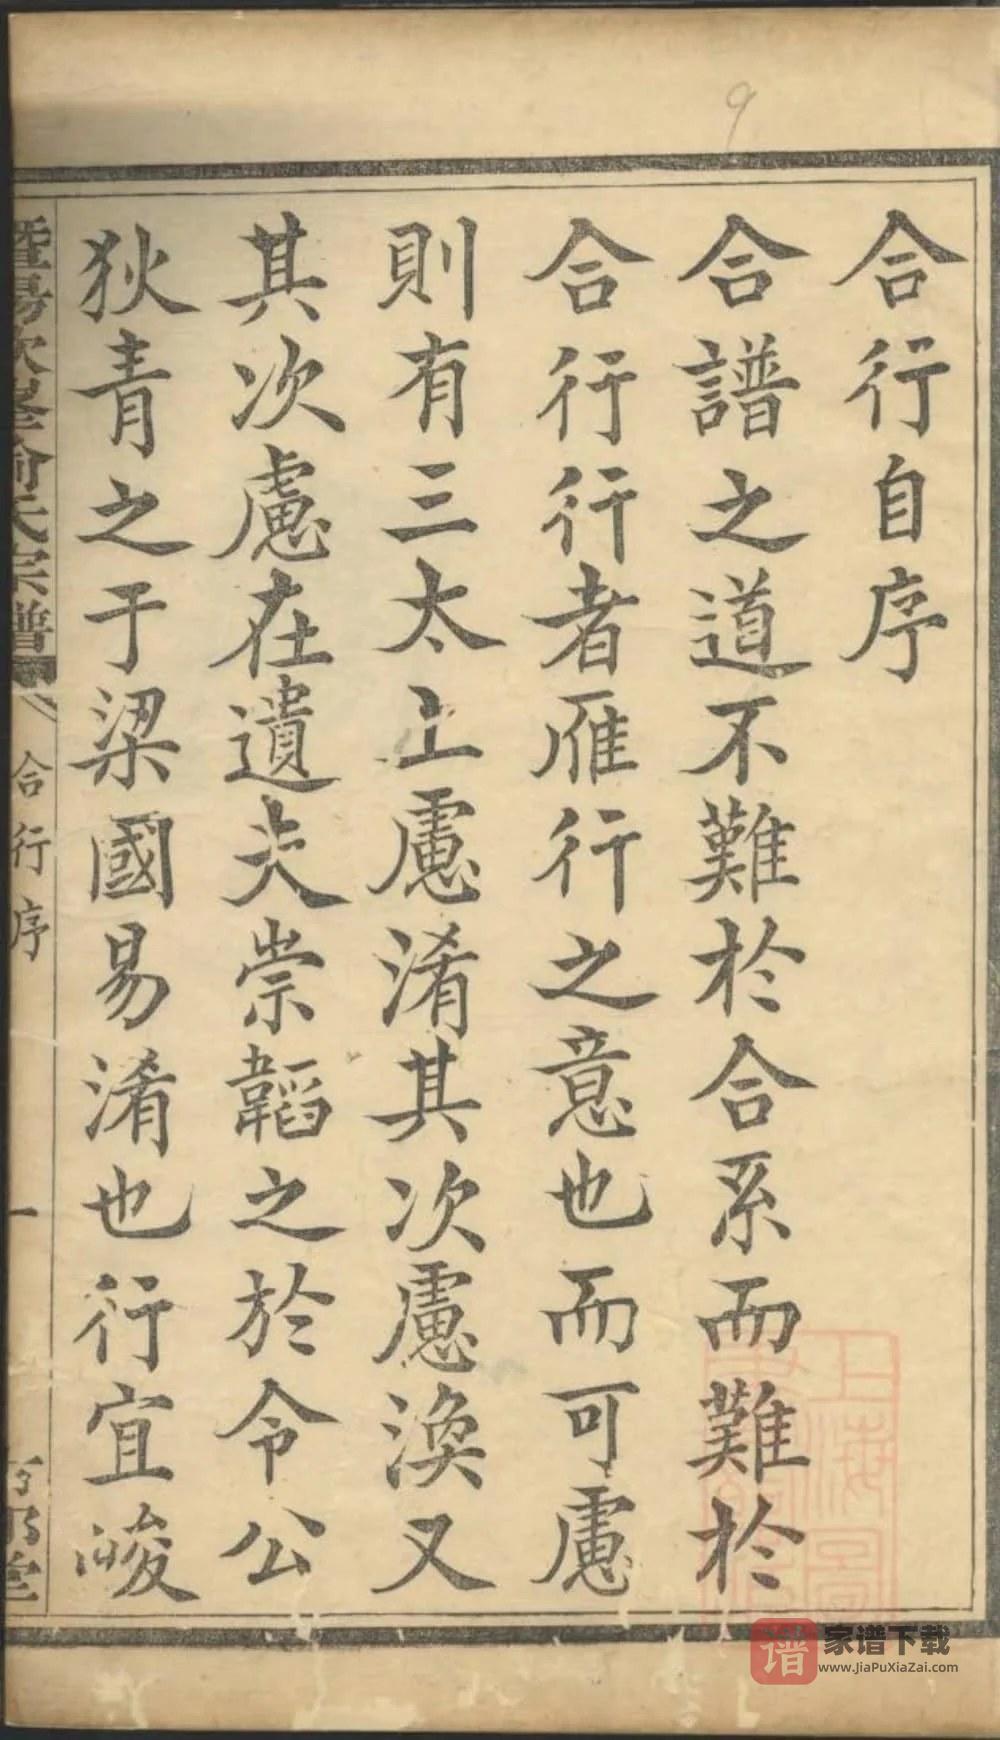 合行自序
合譜之道不難於合系而難於
合行行者雁行之意也而可慮
則有三太上慮淆其次慮渙又
其次慮在遺夫崇韜之於令公
狄青之于梁國易淆也行宜峻
暨陽次峯俞氏宗譜
合行序
一
堂
9
上海圖
谱
家谱下载
www.JiaPuXiaZai.com